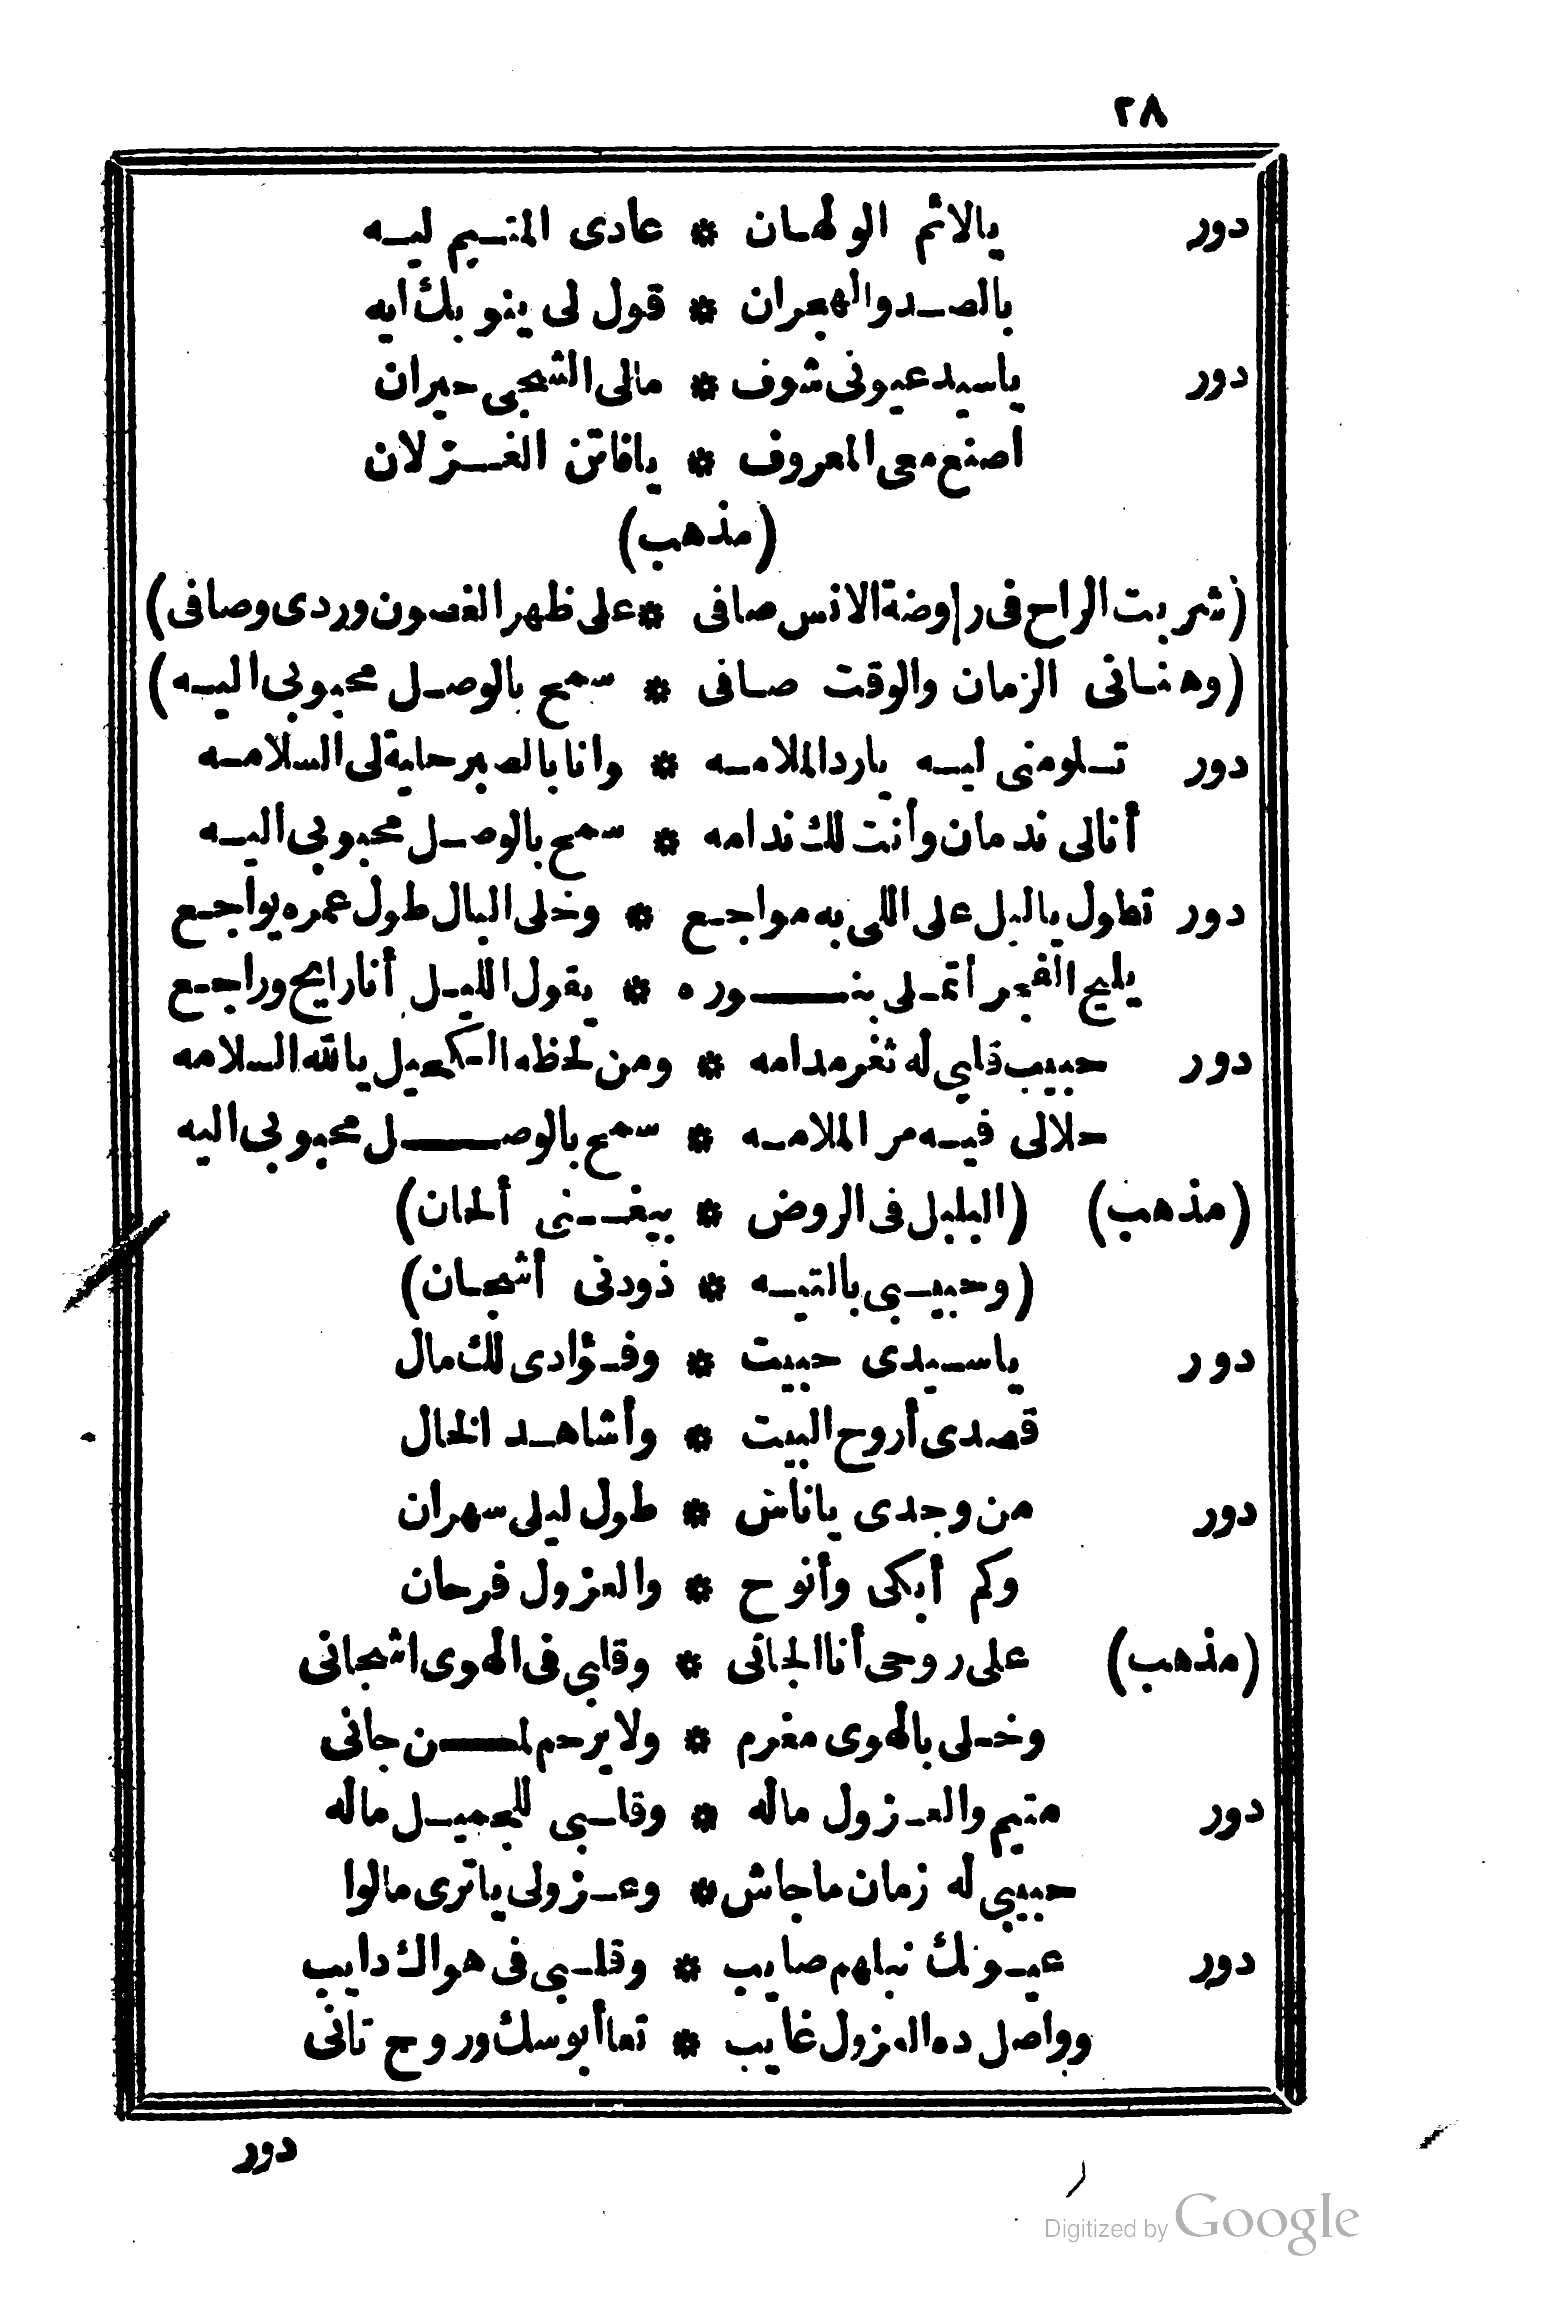 ٢٨
دور يالاثم الولهان * عادى المتيم ليه
بالصدوالهجران * قول لى ينو بك ايه
دور ياسيدعيونى شوف * مالى الشجى حيران
اصنع معى المعروف * يافاتن الغزلان
(مذهب)
(شربت الراح فى راوضة الانس صافى * على ظهر الغصون وردى وصافى)
(وهنانى الزمان والوقت صافى * سمح بالوصل محبوبى اليه)
دور تلومنى ليه ياردالملامه * وانا بالصبر حاية لى السلامه
أنالى ندمان وأنت لك ندامه * سمح بالوصل محبوبى اليه
دور تطول ياليل على اللى به مواجع * وخلى البال طول عمره يواجع
يليج الفجر أتملى بنوره * يقول الليل أنا رايح وراجع
دور حبيب قلبى له ثغر مدامه * ومن لحظه الكحيل يالله السلامه
حلالى فيه مر الملامه * سمح بالوصل محبوبى اليه
(مذهب) (البلبل فى الروض * بيغنى ألحان)
(وحبيبى بالتيه * ذودنى أشجان)
دور ياسيدى حبيت * وفؤادى لك مال
قصدى أروح البيت * وأشاهد الخال
دور من وجدى ياناس * طول ليلى سهران
وكم أبكى وأنوح * والعزول فرحان
(مذهب) على روحى أنا الجانى * وقلبى فى الهوى اشجانى
وخلى بالهوى مغرم * ولا يرحم لمن جانى
دور متيم والعزول ماله * وقلبى للجميل ماله
حبيبى له زمان ماجاش * وعزولى ياترى مالوا
دور عيونك نبلهم صايب * وقلبى فى هواك دايب
وواصل ده العزول غايب * تعا أبوسك وروح تانى
دور
Digitized by Google